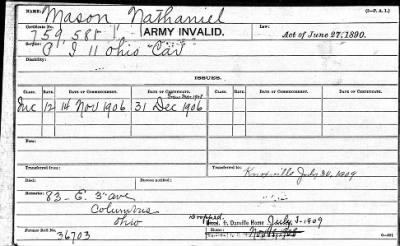 NAME: Mason Nathaniel (3-P. A. 1.)
Certificate No. 759,581 ARMY INVALID. Law: Act of June 27, 1890.
Service: I 11 Ohio "Cav"
Disability:
ISSUES.
CLASS. RATE. DATE OF COMMENCEMENT. DATE OF CERTIFICATE. CLASS. RATE. DATE OF COMMENCEMENT. DATE OF CERTIFICATE.
Inc 12 14 Nov 1906 31 Dec 1906
Fee:
Transferred from: Transferred to: Knoxville July 30, 1909
Died: Bureau notified:
Remarks: 83 - E. 3" ave
Columbus
Ohio
Dropped. Danville Home July 3-1909
Former Roll No. 36703